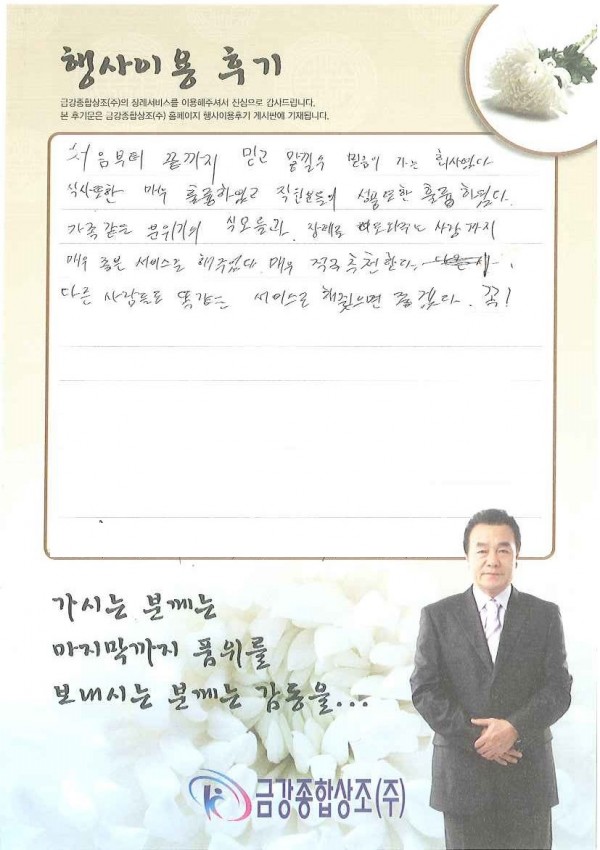 행사이용 후기
금강종합상조(주)의 장례서비스를 이용해주셔서 진심으로 감사드립니다.
본 후기문은 금강종합상조(주) 홈페이지 행사이용후기 게시판에 기재됩니다.
처음부터 끝까지 믿고 맡낄수 믿음이 가는 회사였다
식사또한 매우 훌륭하였고 직원분들의 성품또한 훌륭하였다.
가족같은 분위기의 장례를 사람까지
매우 좋은 서비스를 해주었다. 매우 적극추천한다.
다른 사람들도 똑같은 서비스로 했으면 좋겠다. 꼭!
가시는 분께는
마지막까지 품위를
보내시는 분께는 감동을...
금강종합상조(주)